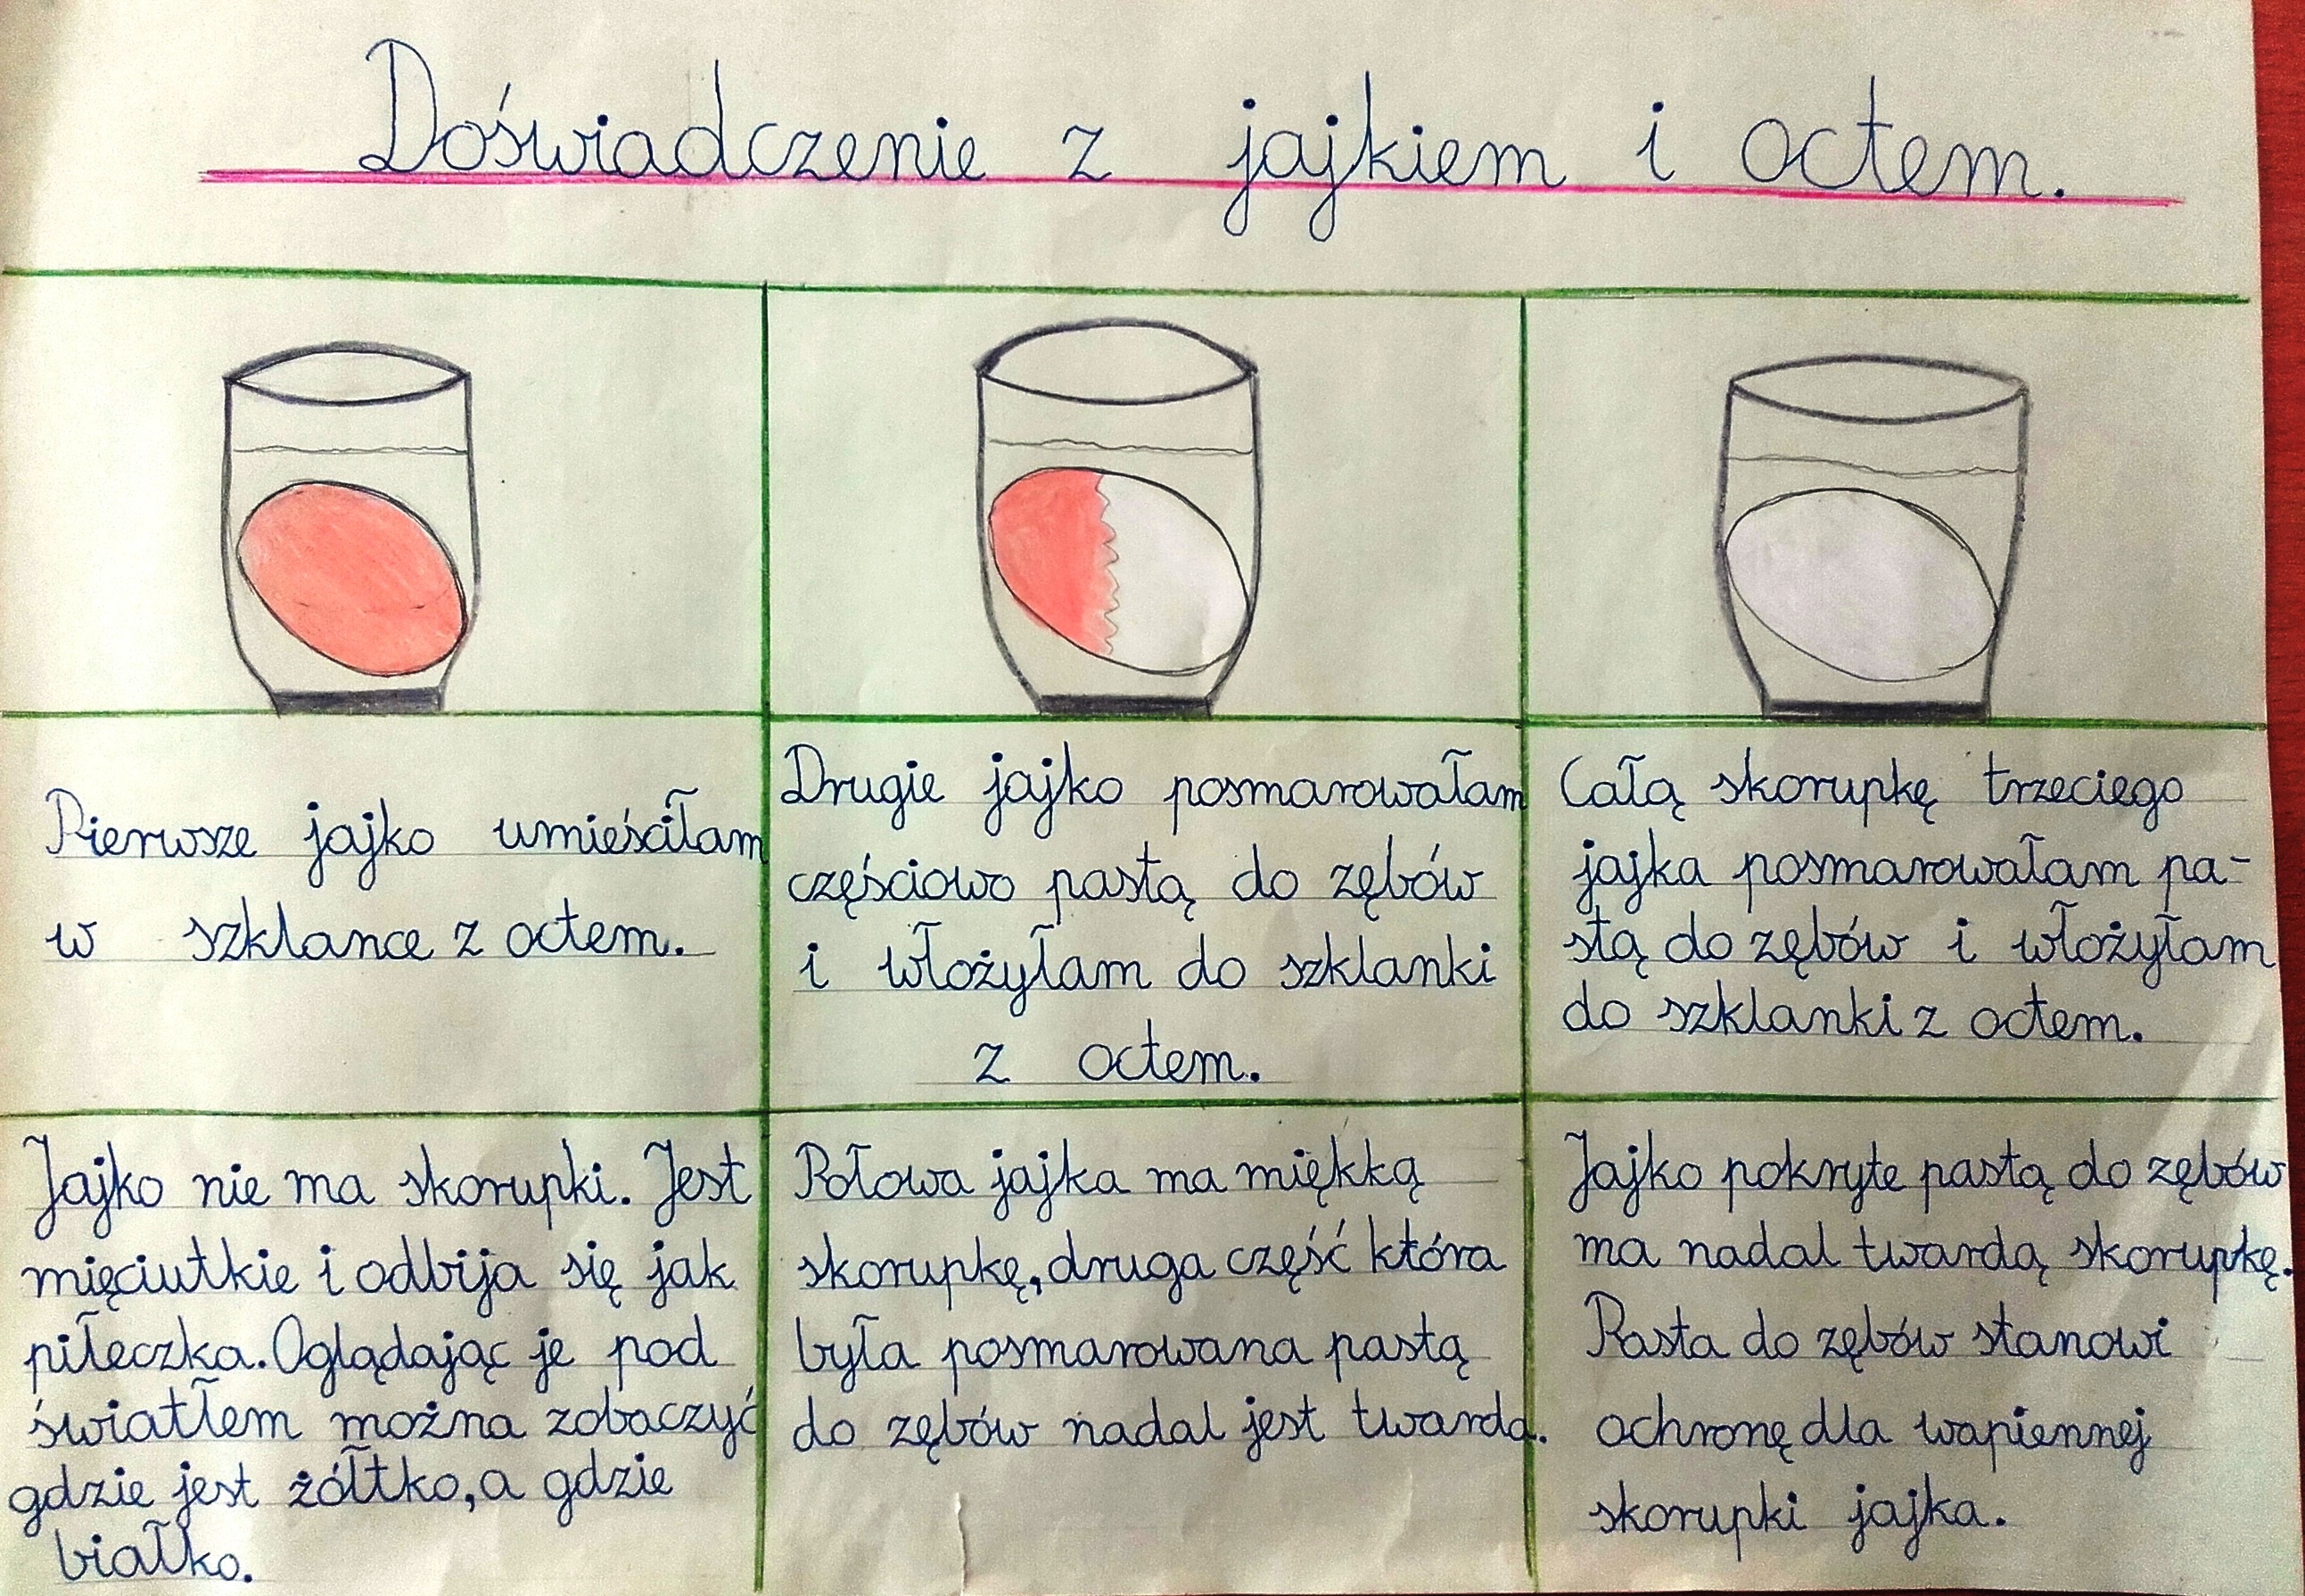 Doświadczenie z jajkiem i octem.
Pierwsze jajko umieściłam
w szklance z octem.
Drugie jajko posmarowałam
częściowo pastą do zębów
i włożyłam do szklanki
z octem.
Całą skorupkę trzeciego
jajka posmarowałam pa-
stą do zębów i włożyłam
do szklanki z octem.
Jajko nie ma skorupki. Jest
mięciutkie i odbija się jak
piłeczka. Oglądając je pod
światłem można zobaczyć
gdzie jest żółtko, a gdzie
białko.
Połowa jajka ma miękką
skorupkę, druga część która
była posmarowana pastą
do zębów nadal jest twarda.
Jajko pokryte pastą do zębów
ma nadal twardą skorupkę.
Pasta do zębów stanowi
ochronę dla wapiennej
skorupki jajka.